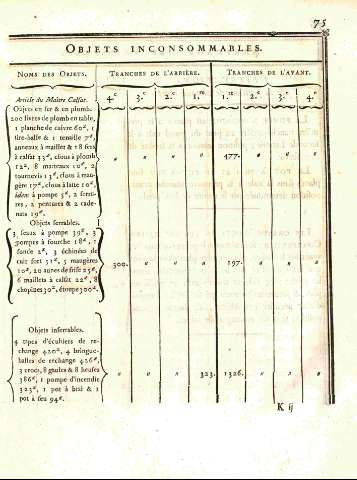 75
OBJETS INCONSOMMABLES.
NOMS DES OBJETS. TRANCHES DE L'ARRIÈRE. TRANCHES DE L'AVANT.
Article du Maître Calfat. 4.e 3.e 2.e 1.re 1.re 2.e 3.e 4.e
Objets en fer & en plomb.
200 livres de plomb en table,
1 planche de cuivre 60#, 1
tire-balle & 1 tenille 7#,
anneaux à maillet & 18 fers
à calfat 33#, clous à plomb " " " " 477. " " "
12#, 8 marteaux 10#, 2
tournevis 13#, clous à mau-
gère 17#, clous à latte 10#,
idem à pompe 5#, 2 serru-
res, 2 pentures & 2 cade-
nats 19#.
Objets serrables.
3 seaux à pompe 39#, 3
pompes à fourche 18#, 1
sonde 2#, 3 échines de
cuir fort 51#, 5 maugères 300. " " " 197. " " "
10#, 20 aunes de frise 25#,
6 maillets à calfat 22#, 8
chopines 30#, étoupe 300#.
Objets inserrables.
4 tipes d'écubiers de re-
change 420#, 4 bringue-
balles de rechange 426#,
3 crocs, 8 gaules & 8 heuses
386#, 1 pompe d'incendie " " " 323. 1326. " " "
323#, 1 pot à brai & 1
pot à feu 94#.
K ij